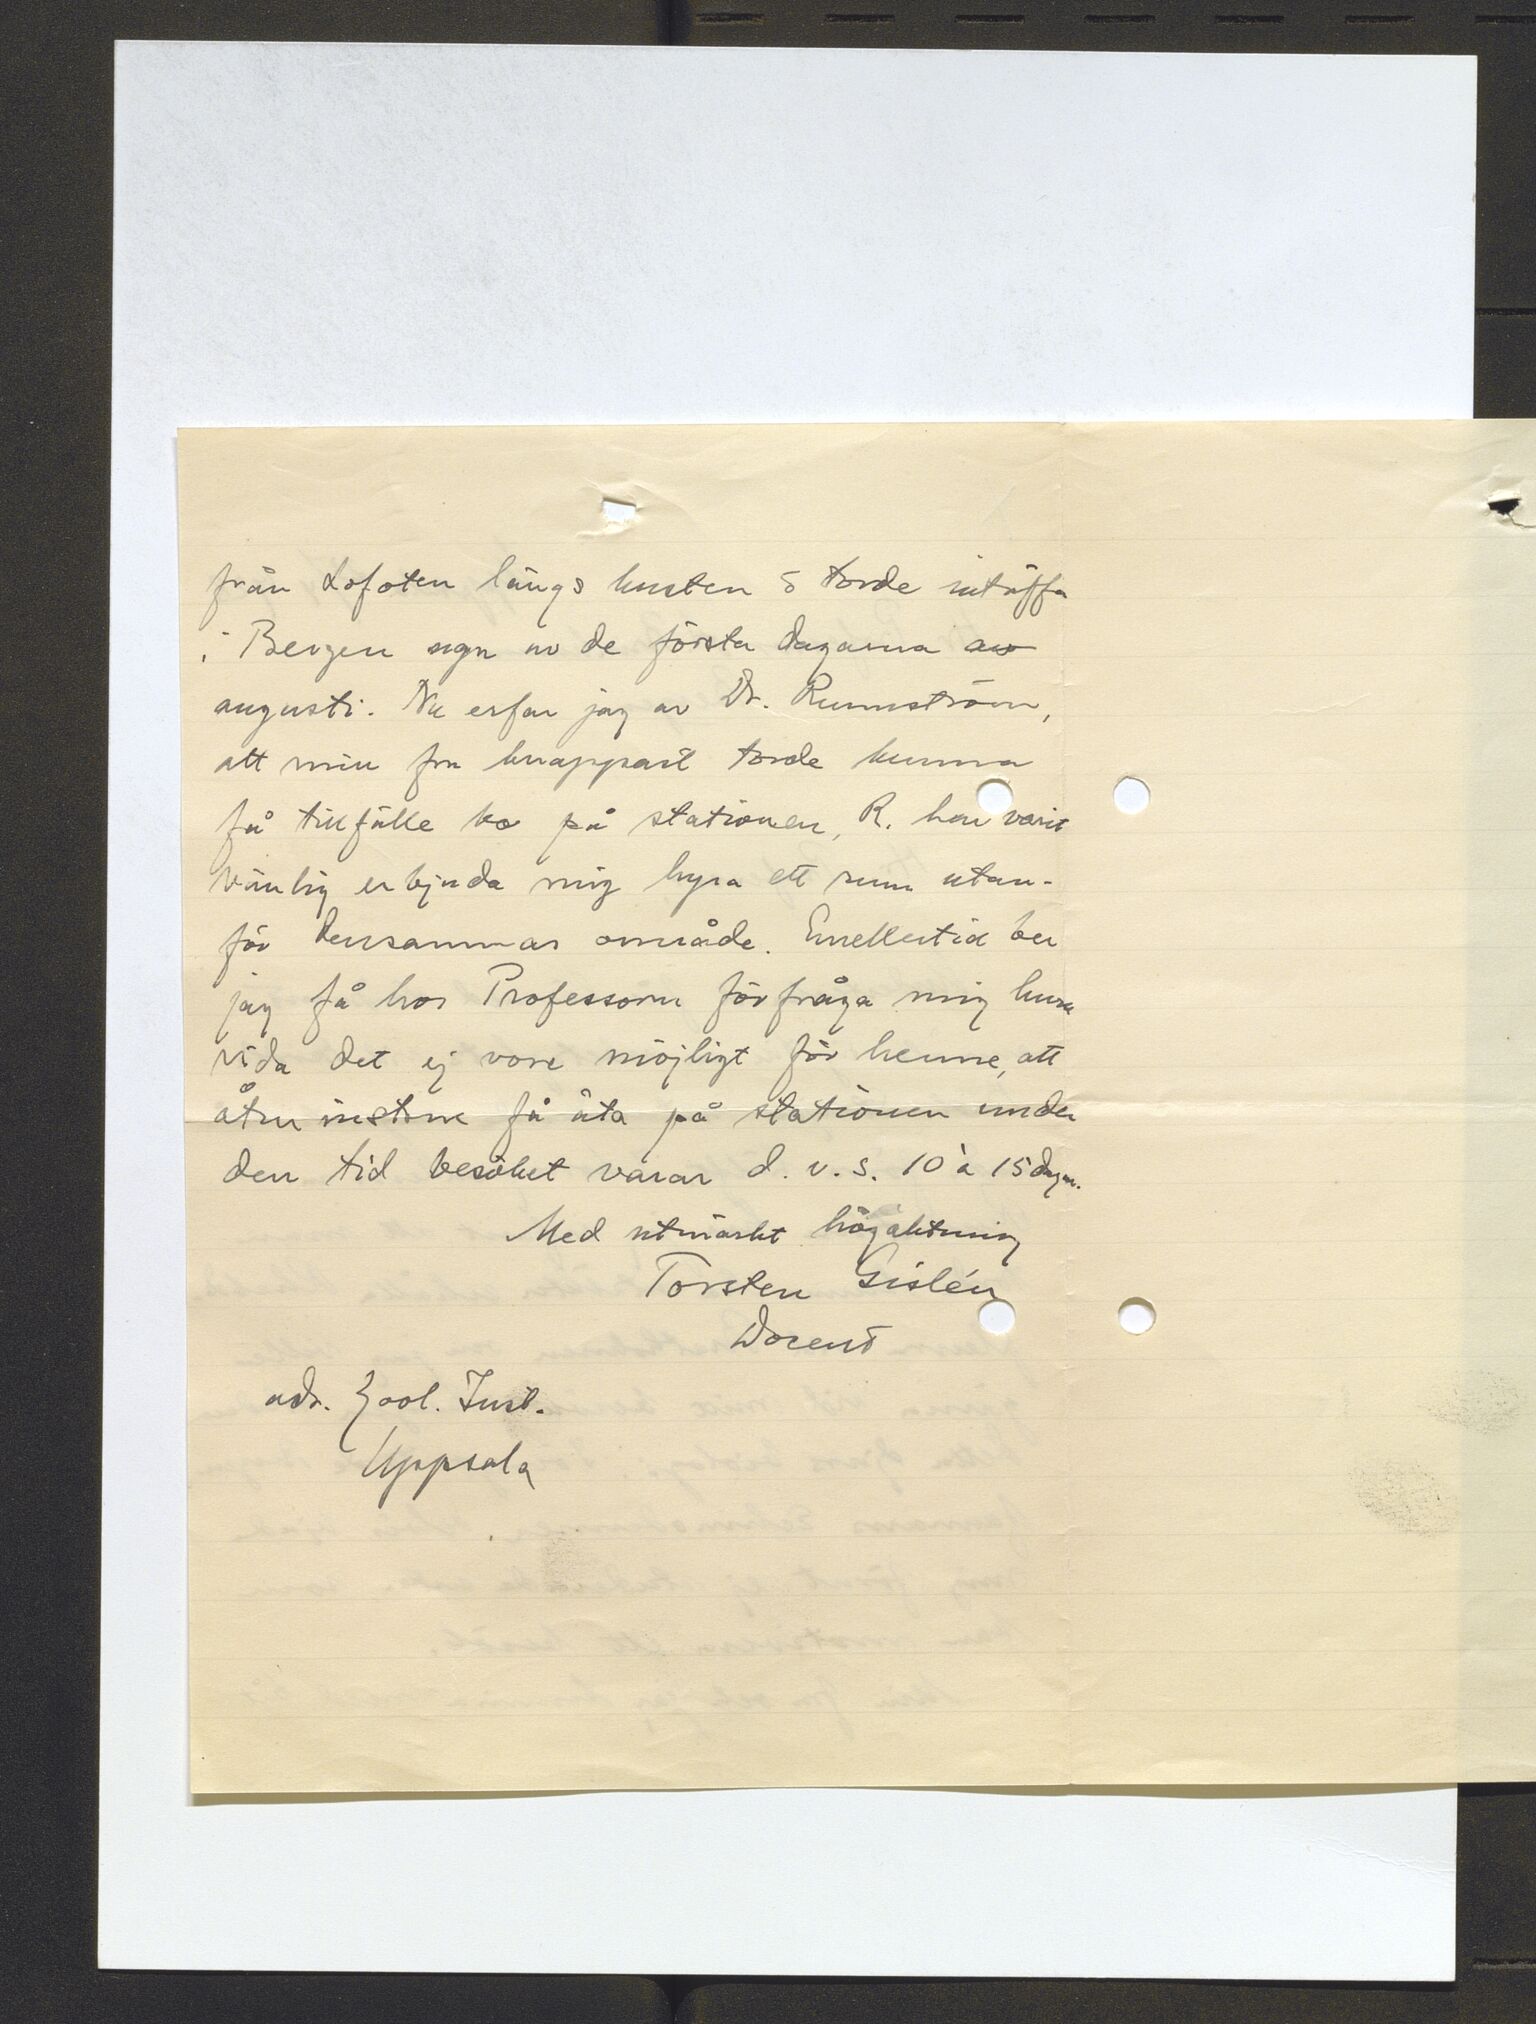 från Lofoten längs kusten o torde inträffa
i Bergen ngn av de första dagarna av
augusti. Nu erfar jag av Dr. Runnström,
att min fru knappast torde kunna
få tillfälle bo på stationen, R. har varit
vänlig erbjuda mig hyra ett rum utan-
för densammas område. Emellertid ber
jag få hos Professorn förfråga mig huru
vida det ej vore möjligt för henne, att
åtminstone få äta på stationen under
den tid besöket varar d. v. s. 10 à 15 dagar.
Med utmärkt högaktning
Torsten Gislén
Docent
adr. Zool. Inst.
Uppsala